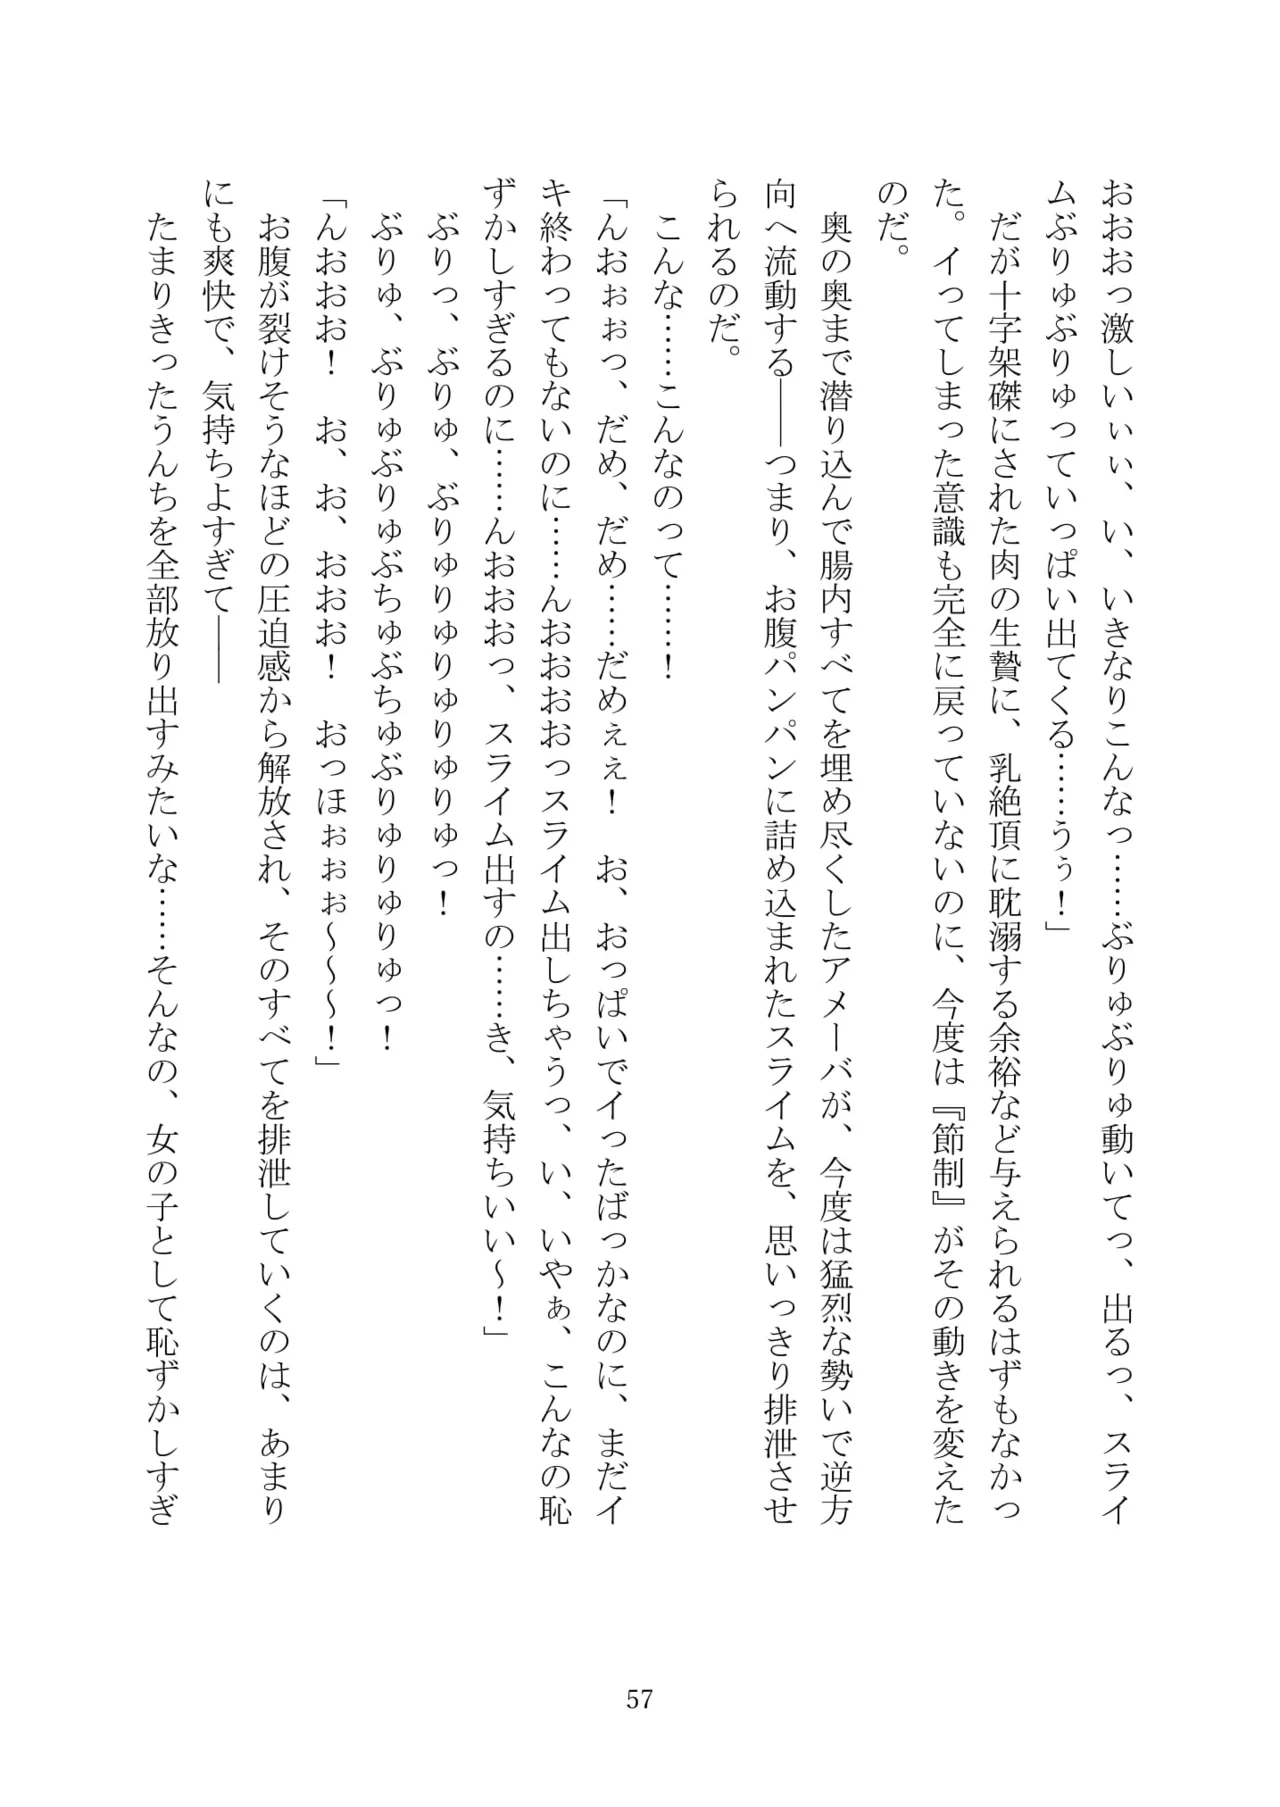 おおおっ激しいぃぃ、い、いきなりこんなっ……ぶりゅぶりゅ動いてっ、出るっ、スライ
ムぶりゅぶりゅっていっぱい出てくる……うぅ！」
だが十字架磔にされた肉の生贄に、乳絶頂に耽溺する余裕など与えられるはずもなかっ
た。イってしまった意識も完全に戻っていないのに、今度は『節制』がその動きを変えた
のだ。
奥の奥まで潜り込んで腸内すべてを埋め尽くしたアメーバが、今度は猛烈な勢いで逆方
向へ流動する――つまり、お腹パンパンに詰め込まれたスライムを、思いっきり排泄させ
られるのだ。
こんな……こんなのって……！
「んおぉぉっ、だめ、だめ……だめぇぇ！　お、おっぱいでイったばっかなのに、まだイ
キ終わってもないのに……んおおおおっスライム出しちゃうっ、い、いやぁ、こんなの恥
ずかしすぎるのに……んおおおっ、スライム出すの……き、気持ちいい～！」
ぶりっ、ぶりゅ、ぶりゅりゅりゅりゅりゅっ！
ぶりゅ、ぶりゅぶりゅぶちゅぶちゅぶりゅりゅりゅっ！
「んおおお！　お、お、おおお！　おっほぉぉぉ～～～！」
お腹が裂けそうなほどの圧迫感から解放され、そのすべてを排泄していくのは、あまり
にも爽快で、気持ちよすぎて――
たまりきったうんちを全部放り出すみたいな……そんなの、女の子として恥ずかしすぎ
57